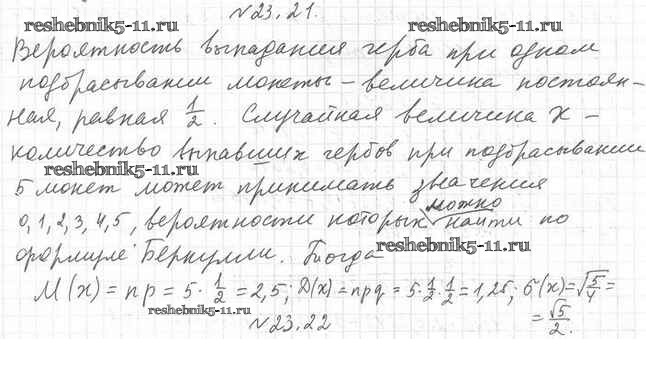 №23.21.
reshebnik5-11.ru reshebnik5-11.ru
Вероятность выпадания герба при одном
подбрасывании монеты – величина постоян-
ная, равная 1/2. Случайная величина X –
количество выпавших гербов при подбрасывании
reshebnik5-11.ru
5 монет может принимать значения
можно
0,1,2,3,4,5, вероятности которых найти по
формуле Бернулли. Тогда
reshebnik5-11.ru
M(x) = np = 5·1/2 = 2,5; D(x) = npq = 5·1/2·1/2 = 1,25; б(x) = √5/4 =
reshebnik5-11.ru
= √5/2.
№23.22